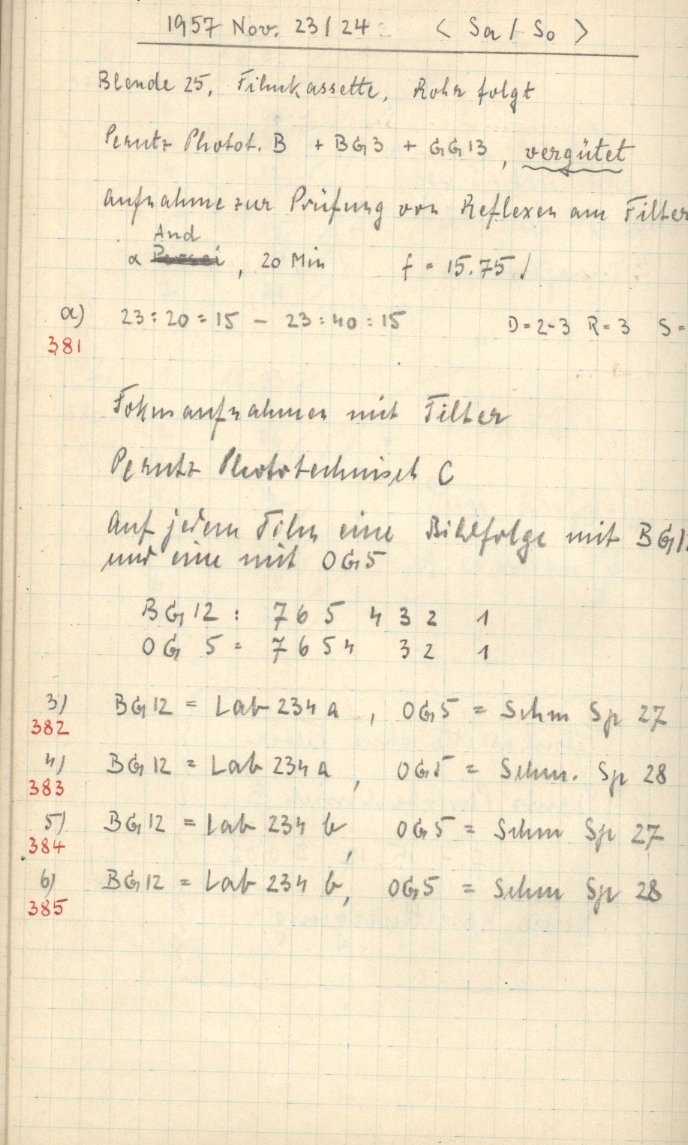 1957 Nov. 23/24 < Sa / So >
Blende 25, Filmkassette, Rohr folgt
Perutz Photot. B + BG3 + GG13, vergütet
Aufnahme zur Prüfung von Reflexen am Filter
And
α Persei, 20 Min f = 15.75
a) 23:20:15 - 23:40:15 D=2-3 R=3 S=
381
Fokusaufnahmen mit Filter
Perutz Phototechnisch C
Auf jedem Film eine Bildfolge mit BG12
und eine mit OG5
BG12: 7 6 5 4 3 2 1
OG 5 = 7 6 5 4 3 2 1
3) BG12 = Lab 234 a, OG5 = Schm Sp 27
382
4) BG12 = Lab 234 a, OG5 = Schm. Sp 28
383
5) BG12 = Lab 234 b, OG5 = Schm Sp 27
384
6) BG12 = Lab 234 b, OG5 = Schm Sp 28
385